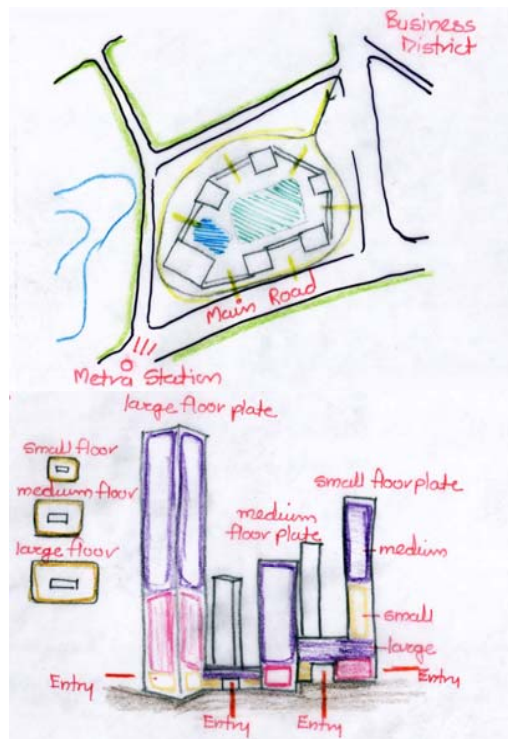 Business
District
Main Road
Metra Station
large floor plate
small floor
medium floor
large floor
small floor plate
medium
floor plate
medium
small
large
Entry
Entry
Entry
Entry